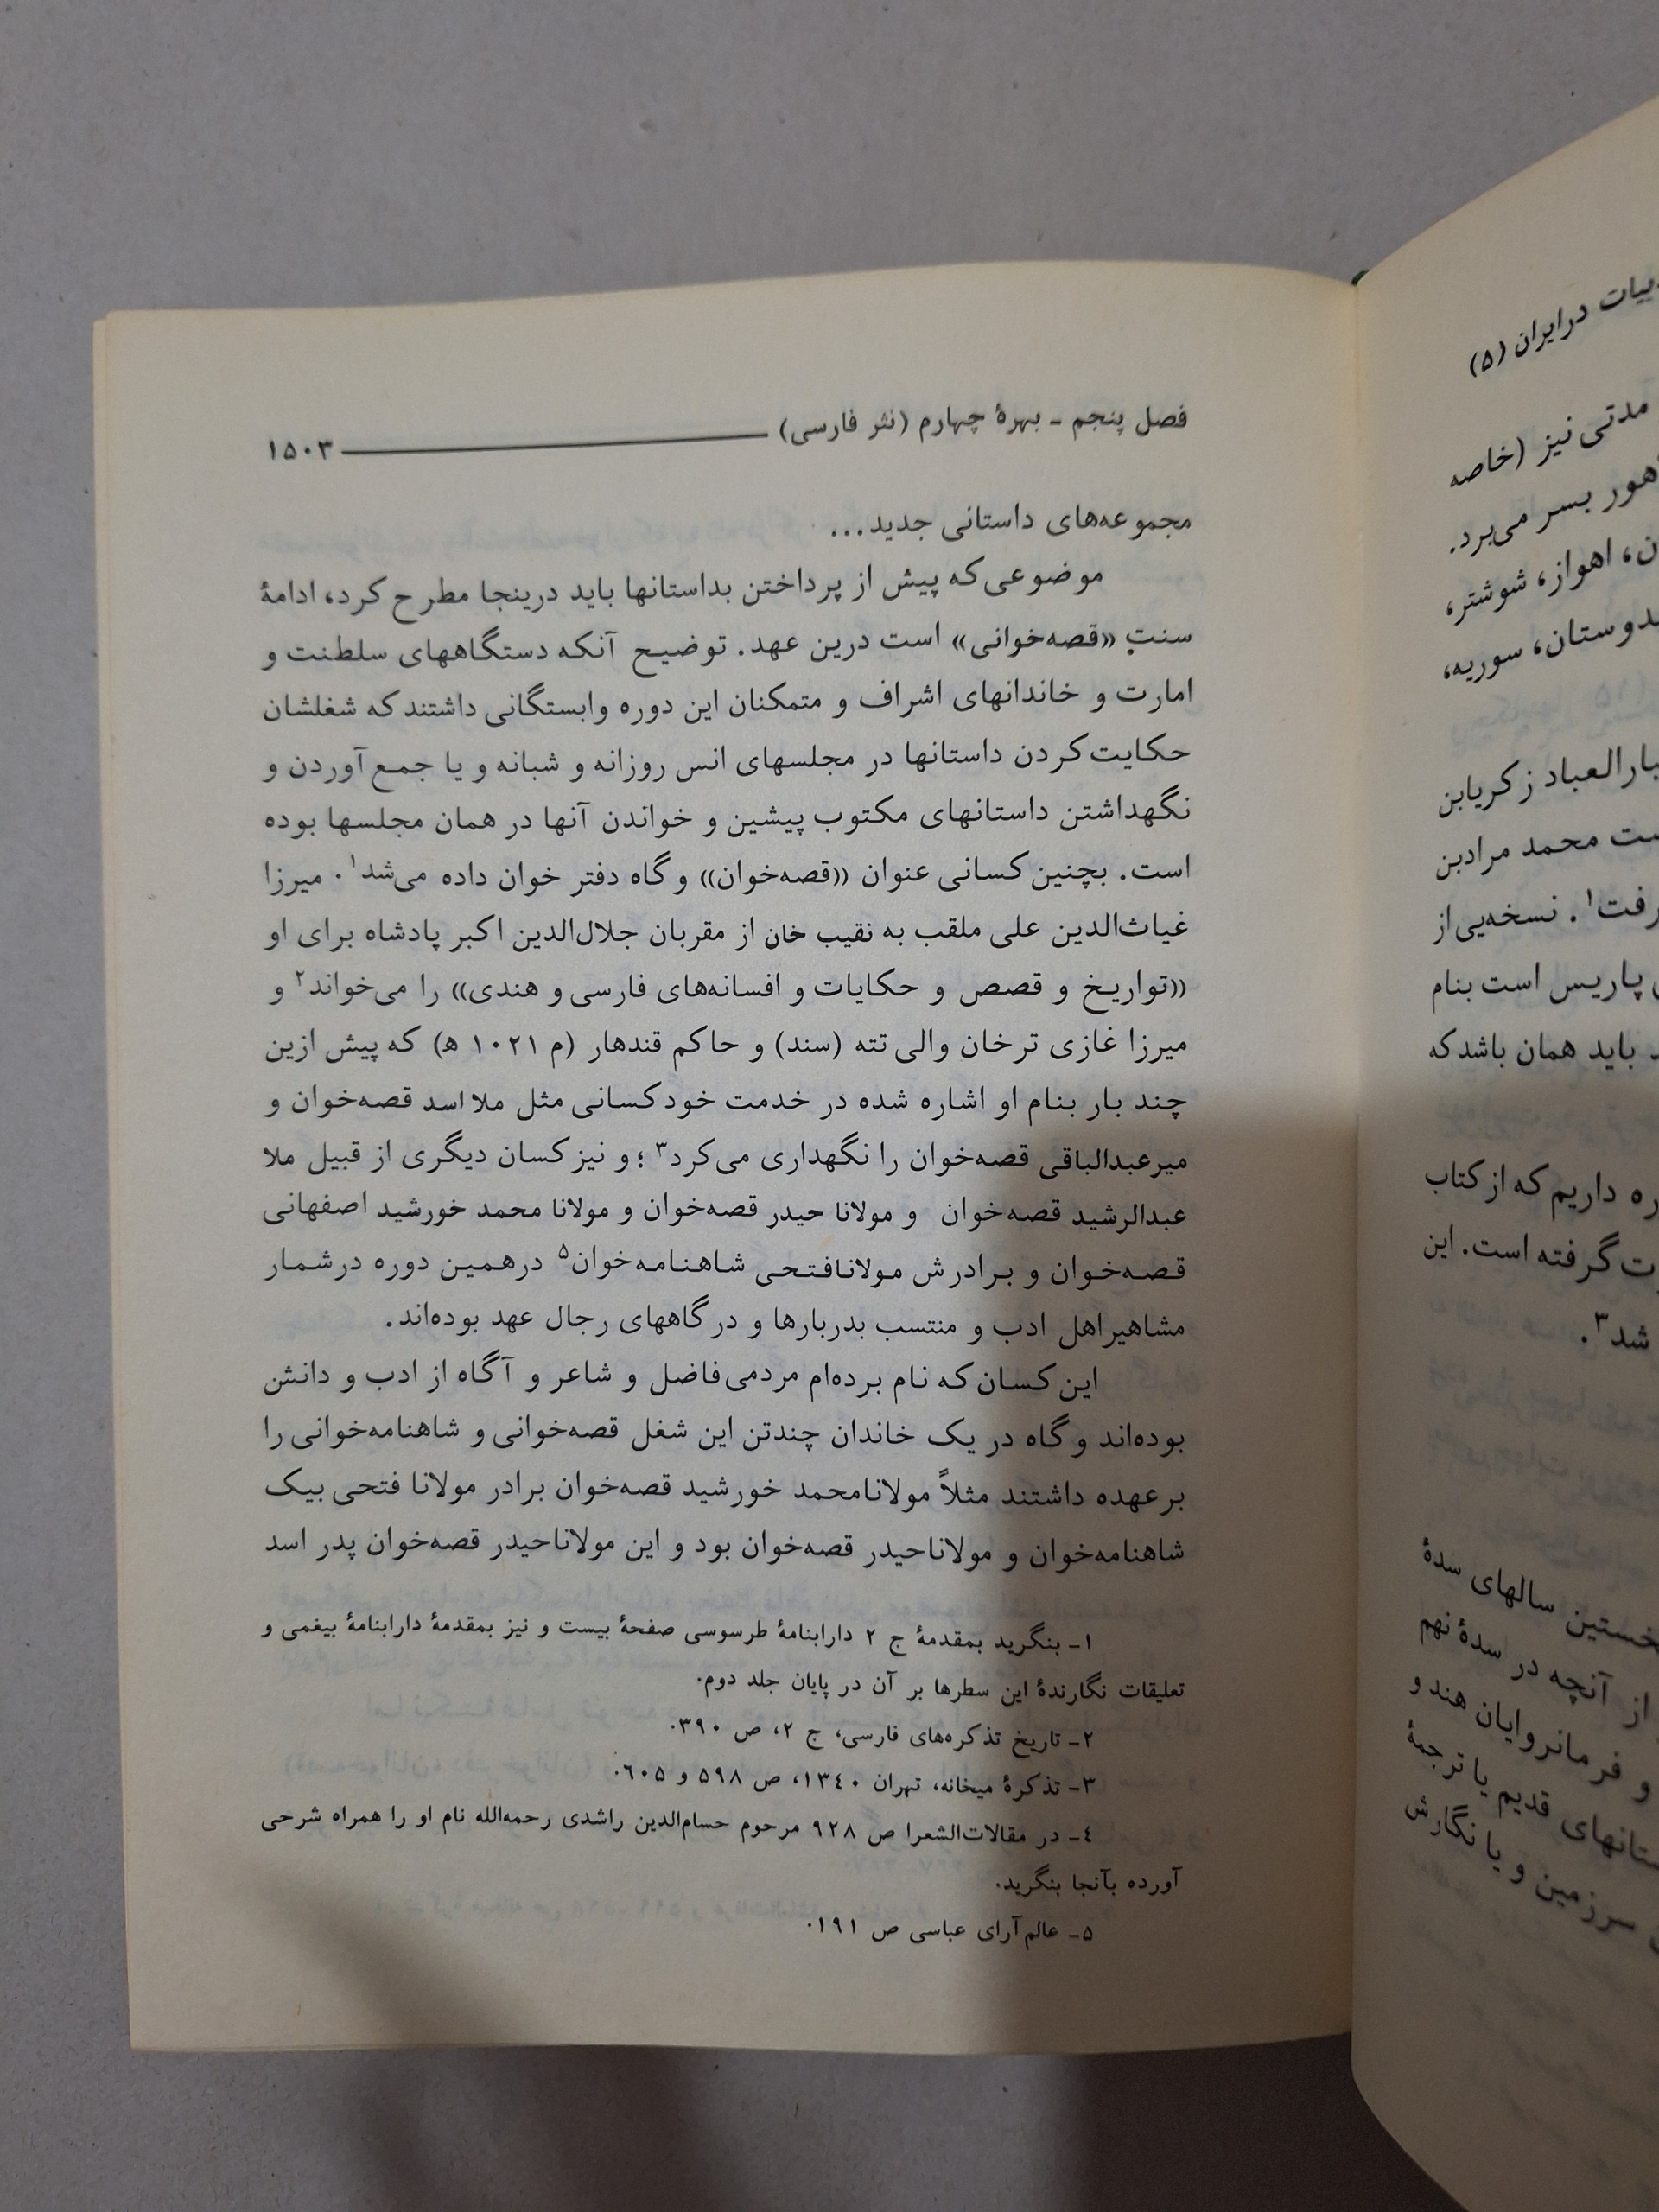 فصل پنجم ـ بهرهٔ چهارم (نثر فارسی) ۱۵۰۳
مجموعه‌های داستانی جدید...
موضوعی‌که پیش از پرداختن بداستانها باید درینجا مطرح کرد، ادامهٔ
سنتِ «قصه‌خوانی» است درین عهد. توضیح آنکه دستگاههای سلطنت و
امارت و خاندانهای اشراف و متمکنان این دوره وابستگانی داشتند که شغلشان
حکایت‌کردن داستانها در مجلسهای انس روزانه و شبانه و یا جمع‌آوردن و
نگهداشتن داستانهای مکتوب پیشین و خواندن آنها در همان مجلسها بوده
است. بچنین کسانی عنوان «قصه‌خوان» و گاه دفتر خوان داده می‌شد۱. میرزا
غیاث‌الدین علی ملقب به نقیب خان از مقربان جلال‌الدین اکبر پادشاه برای او
«تواریخ و قصص و حکایات و افسانه‌های فارسی و هندی» را می‌خواند۲ و
میرزا غازی ترخان والی تته (سند) و حاکم قندهار (م ۱۰۲۱ ه) که پیش ازین
چند بار بنام او اشاره شده در خدمت خود کسانی مثل ملا اسد قصه‌خوان و
میرعبدالباقی قصه‌خوان را نگهداری می‌کرد۳؛ و نیز کسان دیگری از قبیل ملا
عبدالرشید قصه‌خوان و مولانا حیدر قصه‌خوان و مولانا محمد خورشید اصفهانی
قصه‌خوان و برادرش مولانافتحی شاهنامه‌خوان۵ درهمین دوره درشمار
مشاهیراهل ادب و منتسب بدربارها و درگاههای رجال عهد بوده‌اند.
این کسان که نام برده‌ام مردمی‌فاضل و شاعر و آگاه از ادب و دانش
بوده‌اند و گاه در یک خاندان چندتن این شغل قصه‌خوانی و شاهنامه‌خوانی را
برعهده داشتند مثلاً مولانامحمد خورشید قصه‌خوان برادر مولانا فتحی بیک
شاهنامه‌خوان و مولاناحیدر قصه‌خوان بود و این مولاناحیدر قصه‌خوان پدر اسد
۱ـ بنگرید بمقدمهٔ ج ۲ دارابنامهٔ طرسوسی صفحهٔ بیست و نیز بمقدمهٔ دارابنامهٔ بیغمی و
تعلیقات نگارندهٔ این سطرها بر آن در پایان جلد دوم.
۲ـ تاریخ تذکره‌های فارسی، ج ۲، ص ۳۹۰.
۳ـ تذکرهٔ میخانه، تهران ۱۳٤۰، ص ۵۹۸ و ٦۰۵.
٤ـ در مقالات‌الشعرا ص ۹۲۸ مرحوم حسام‌الدین راشدی رحمه‌الله نام او را همراه شرحی
آورده بآنجا بنگرید.
۵ـ عالم‌آرای عباسی ص ۱۹۱.
درایران (۵)
مدتی نیز (خاصه
بسر می‌برد.
اهواز، شوشتر،
سوریه،
زکریابن
محمد مرادبن
نسخه‌یی از
پاریس است بنام
باید همان باشد که
داریم که از کتاب
گرفته است. این
شد۳.
سالهای سدهٔ
از آنچه در سدهٔ نهم
و فرمانروایان هند و
قدیم یا ترجمهٔ
سرزمین و یا نگارش